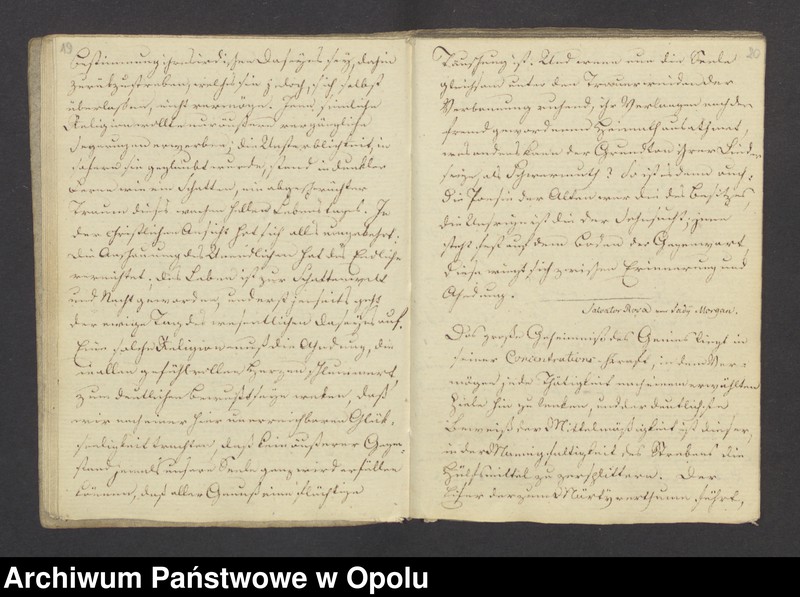 19
Bestimmung ihres irdischen Daseyns sey, dahin
zurückzustreben, welches sie jedoch, sich selbst
überlassen, nicht vermöge. Jene sinnliche
Religion wollte nur äußere vergängliche
Segnungen erwerben; die Unsterblichkeit, in
sofern sie geglaubt wurde, stand in dunkler
Ferne wie ein Schatten, ein abgeschwächter
Traum dieses wachen hellen Lebenstages. In
der christlichen Ansicht hat sich alles umgekehrt;
die Anschauung des Unendlichen hat das Endliche
vernichtet; das Leben ist zur Schattenwelt
und Nacht geworden, und erst jenseits geht
der ewige Tag des wesentlichen Daseyns auf.
Eine solche Religion muß die Ahndung, die
in allen gefühlvollen Herzen schlummert,
zum deutlichen Bewußtseyn wecken, daß
wir nach einer hier unerreichbaren Glück-
seeligkeit trachten, daß kein äußerer Gegen-
stand jemals unsere Seele ganz wird erfüllen
können, daß aller Genuß eine flüchtige
20
Täuschung ist. Und wenn nun die Seele
gleichsam unter den Trauerweiden der
Verbannung ruhend, ihr Verlangen nach der
fremd gewordenen Heimath ausathmet,
was anders kann der Grundton ihrer Lieder
seyn, als Schwermuth? So ist es denn auch:
die Poesie der Alten war die des Besitzes,
die unsrige ist die der Sehnsucht; jene
steht fest auf dem Boden der Gegenwart,
diese wiegt sich zwischen Erinnerung und
Ahndung.
Salvator Rosa von Lady Morgan.
Das große Geheimniß des Genies liegt in
seiner Concentrations-Kraft, in dem Ver-
mögen, jede Thätigkeit nach einem erwählten
Ziele hin zu lenken, und der deutlichste
Beweiß der Mittelmäßigkeit ist dieser,
in der Mannigfaltigkeit des Strebens die
Hülfsmittel zu zersplittern. Der
Eifer der zum Märtyrerthume führt,
Archiwum Państwowe w Opolu